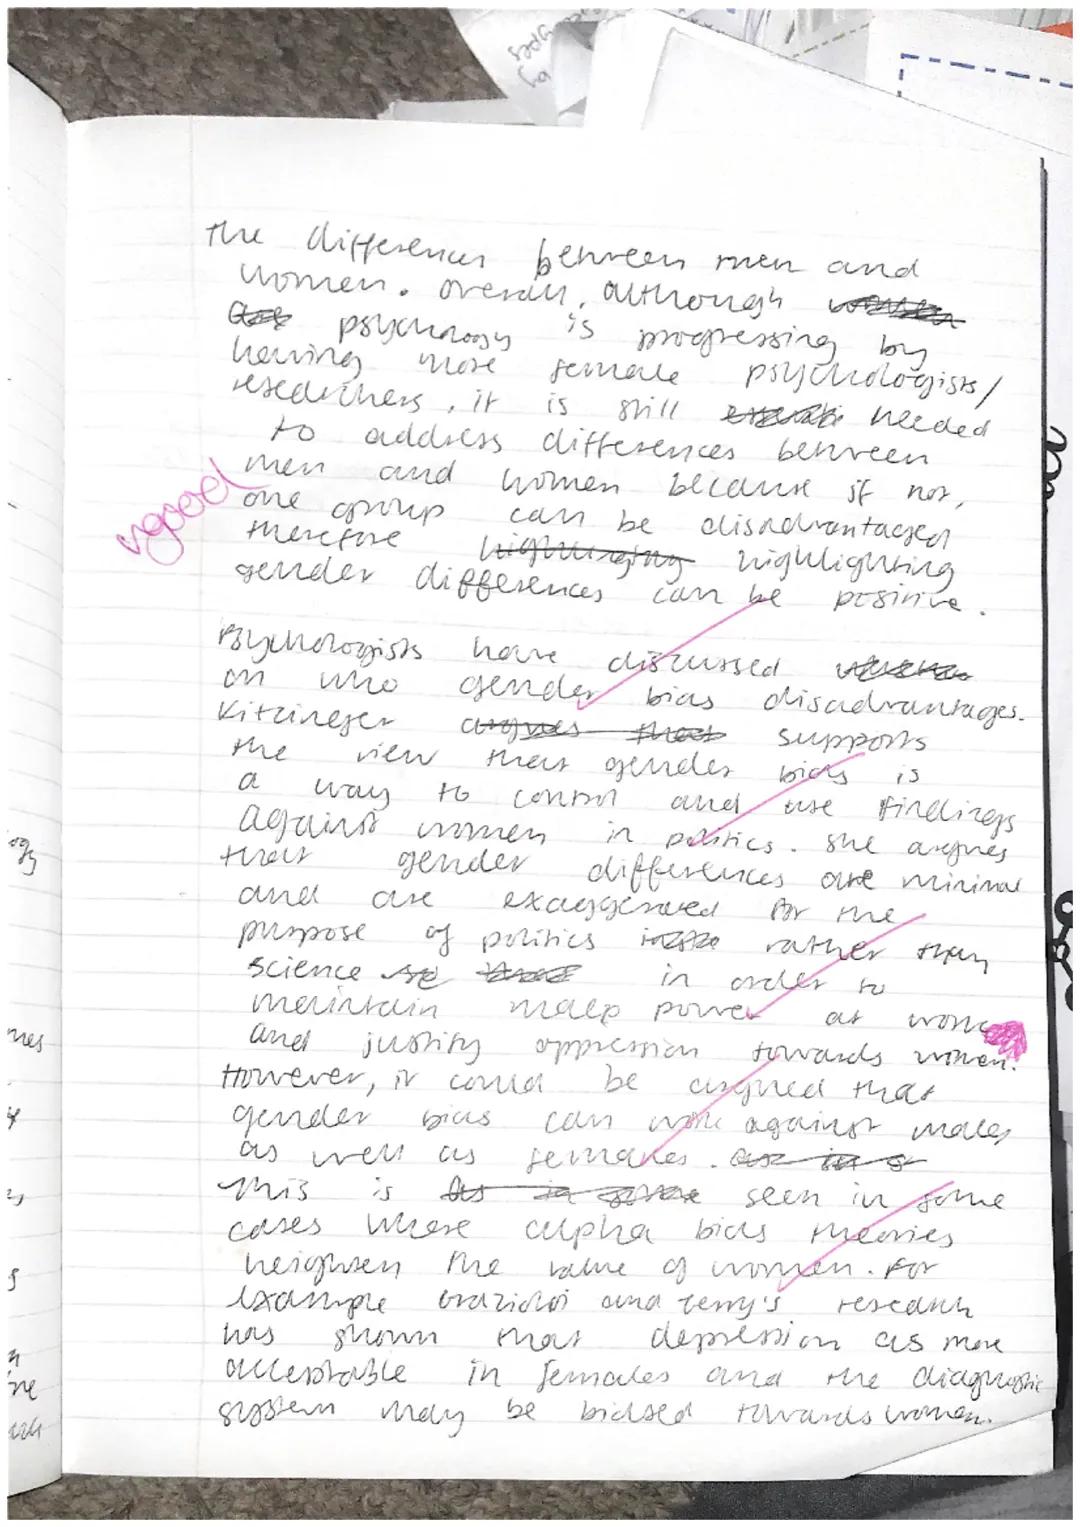 the differences between men and
women. overall, although
psychology is progressing by
having more female psychologists/
researchers, it is still needed
to address differences between
men and women because if not,
vgood
one group can be disadvantaged
therefore highlighting
gender differences can be positive.
Psychologists have discussed
on who gender bias disadvantages.
Kitzineger argues that supports
the view that gender bias is
a way to control and use findings
against women in politics. She argues
that gender differences are minimal
and are exaggerated for the
purpose of politics rather than
science in order to
maintain male power at work
and justify oppression towards women.
However, it could be argued that
gender bias can work against males
as well as females.
This is seen in some
cases where alpha bias theories
heighten the value of women. For
example and Terry's research
has shown that depression as more
acceptable in females and the diagnostic
system may be biased towards women.